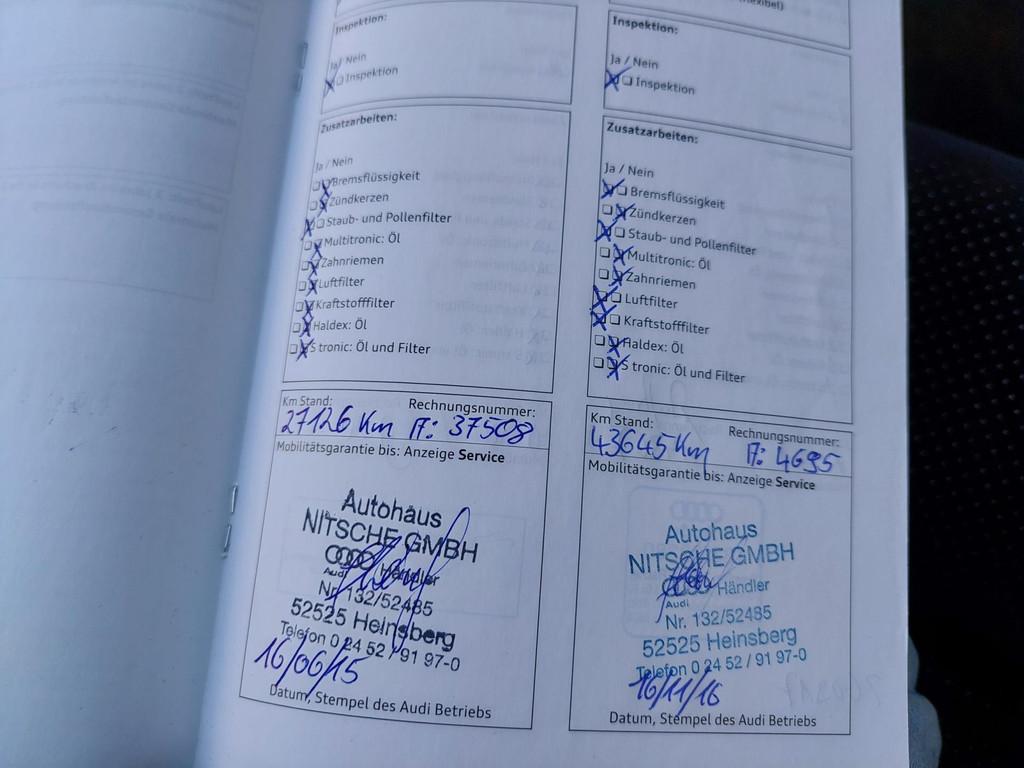 Inspektion:
Ja / Nein
Inspektion
Zusatzarbeiten:
Ja / Nein
Bremsflüssigkeit
Zündkerzen
Staub- und Pollenfilter
Multitronic: Öl
Zahnriemen
Luftfilter
Kraftstofffilter
Haldex: Öl
S tronic: Öl und Filter
Km Stand: Rechnungsnummer:
27126 Km A: 37508
Mobilitätsgarantie bis: Anzeige Service
Autohaus
NITSCHE GMBH
Audi Händler
Nr. 132/52485
52525 Heinsberg
Telefon 0 24 52 / 91 97-0
16/06/15
Datum, Stempel des Audi Betriebs
Inspektion:
Ja / Nein
Inspektion
Zusatzarbeiten:
Ja / Nein
Bremsflüssigkeit
Zündkerzen
Staub- und Pollenfilter
Multitronic: Öl
Zahnriemen
Luftfilter
Kraftstofffilter
Haldex: Öl
S tronic: Öl und Filter
Km Stand: Rechnungsnummer:
43645 Km A: 4695
Mobilitätsgarantie bis: Anzeige Service
Autohaus
NITSCHE GMBH
Audi Händler
Nr. 132/52485
52525 Heinsberg
Telefon 0 24 52 / 91 97-0
16/11/16
Datum, Stempel des Audi Betriebs